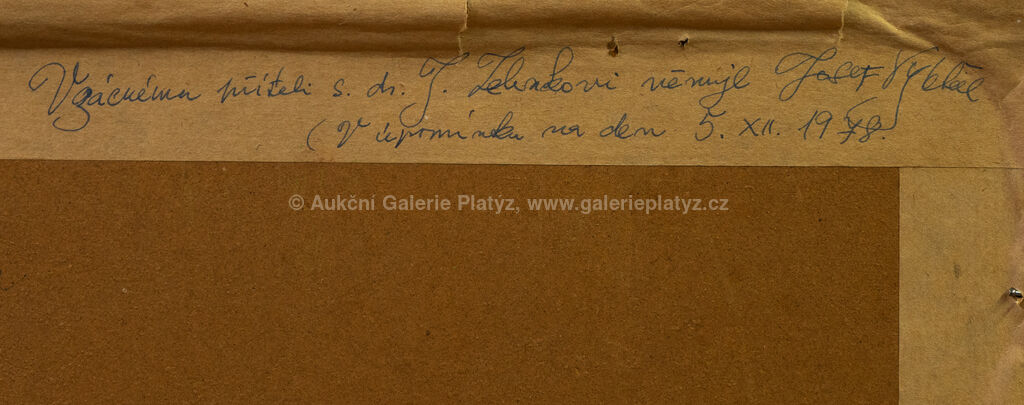 Vzácnému příteli s. dr. J. věnuje Josef
(V upomínku na den 5. XII. 1978.
© Aukční Galerie Platýz, www.galerieplatyz.cz